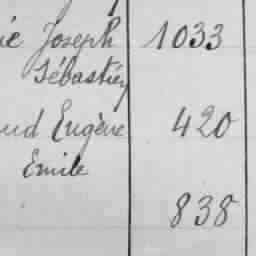 ie Joseph 1033
Sébastien
ud Eugène 420
Emile
838